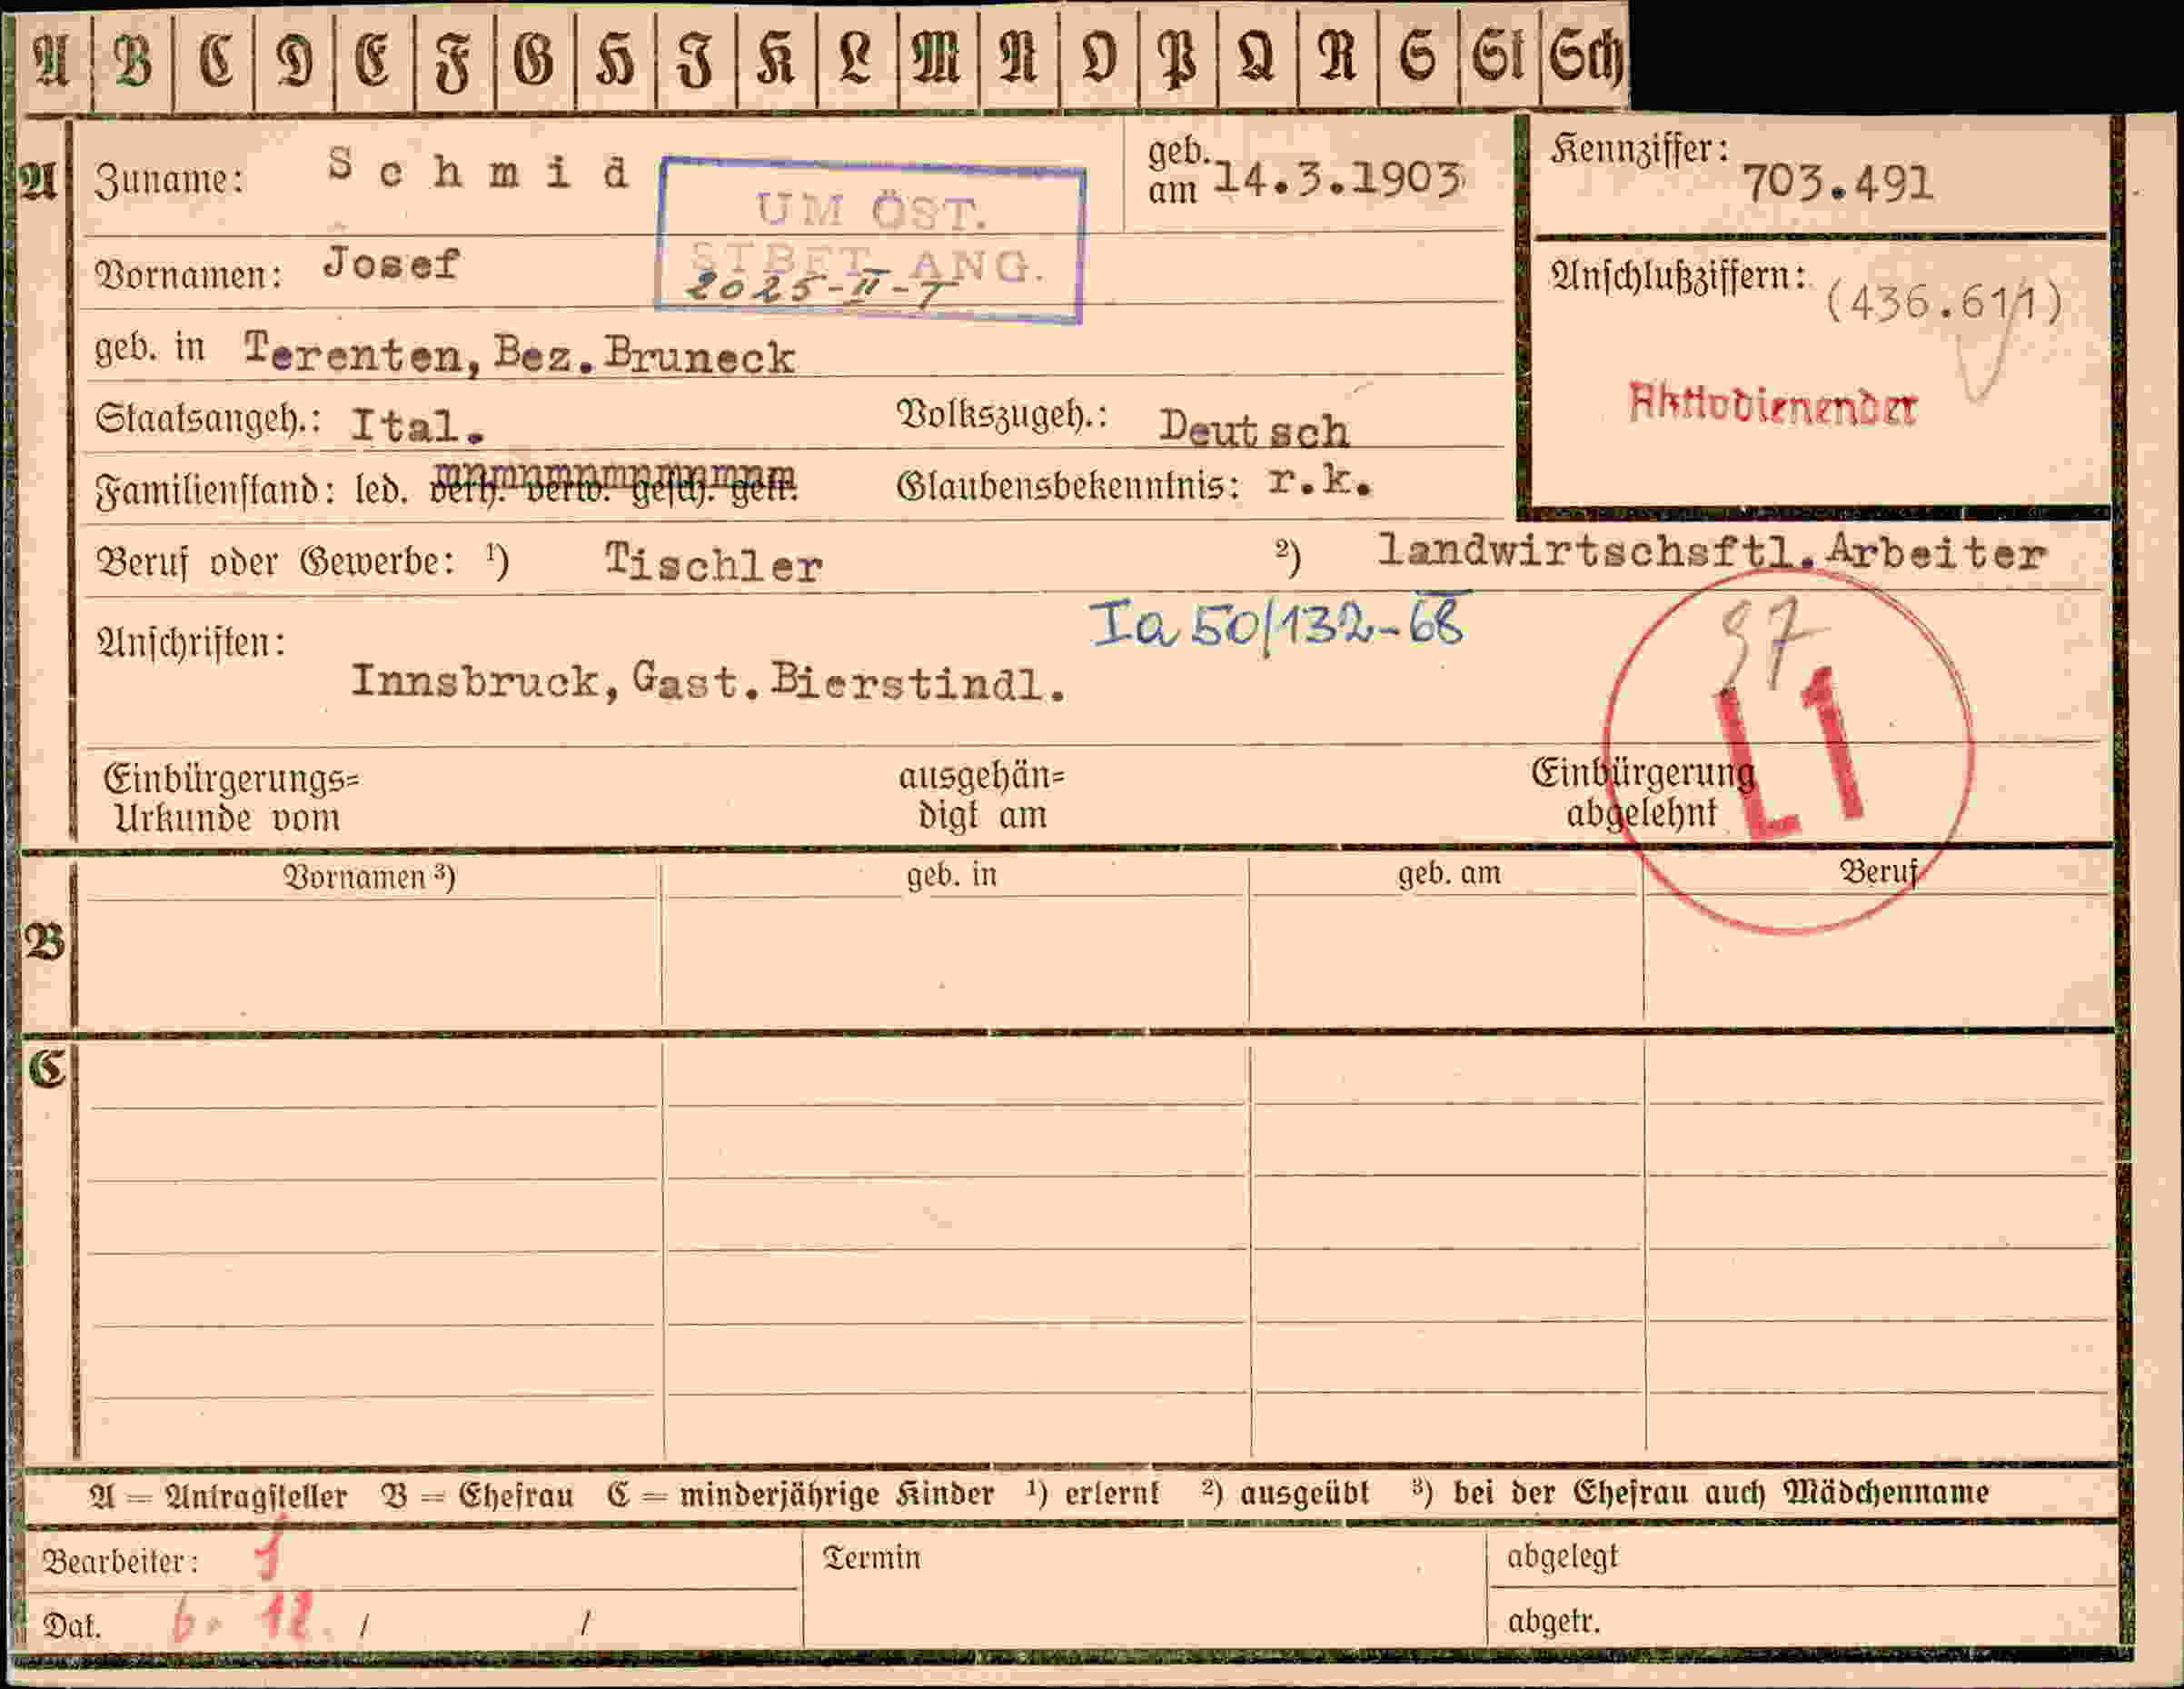 A B C D E F G H I K L M N O P Q R S St Sch
A Zuname: Schmid geb. am 14.3.1903 Kennziffer: 703.491
UM ÖST.
STBFT ANG.
2025-II-T
Vornamen: Josef
Anschlußziffern: (436.611)
geb. in Terenten, Bez. Bruneck
Aktivdienender
Staatsangeh.: Ital. Volkszugeh.: Deutsch
Familienstand: led. verh. verw. gesch. getr. Glaubensbekenntnis: r.k.
Beruf oder Gewerbe: ¹) Tischler ²) landwirtschsftl. Arbeiter
Ia 50/132-68
97
Anschriften:
Innsbruck, Gast. Bierstindl.
L1
Einbürgerungs= ausgehän= Einbürgerung
Urkunde vom digt am abgelehnt
Vornamen ³) geb. in geb. am Beruf
B
C
A = Antragsteller B = Ehefrau C = minderjährige Kinder ¹) erlernt ²) ausgeübt ³) bei der Ehefrau auch Mädchenname
Bearbeiter: Termin abgelegt
Dat. 6. 12. / / abgetr.